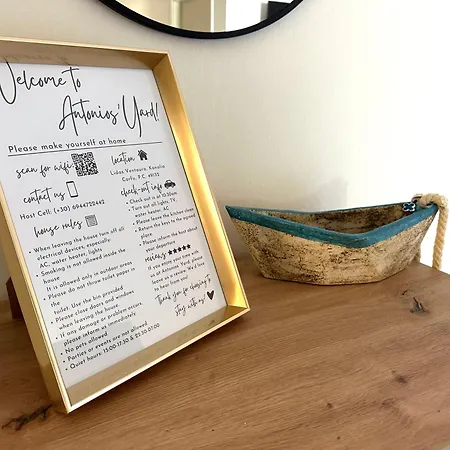 Welcome to
Antonios' Yard!
Please make yourself at home
scan for wifi
contact us
Host Cell: (+30) 6944722442
house rules
• When leaving the house turn off all
electrical devices, especially
AC, water heater, lights
• Smoking is not allowed inside the
house.
It is allowed only in outdoor areas
• Please do not throw toilet paper in
the
toilet. Use the bin provided
• Please close doors and windows
when leaving the house.
• If any damage or problem occurs,
please inform us immediately
• No pets allowed
• Parties or events are not allowed
• Quiet hours: 15:00-17:30 &
location
Lidas Ventoura, Kanalia
Corfu, P.C. 49132
check-out info
• Check out is at 10:30am
• Turn out all lights, TV,
water heater, AC
• Please leave the kitchen clean
• Return the keys to the agreed
place
• Please inform the host about
your departure
reviews
• If you enjoy your time with
us at Antonios' Yard, please
leave us a review. We'd love
to hear from you!
Thank you for choosing to
stay with us!